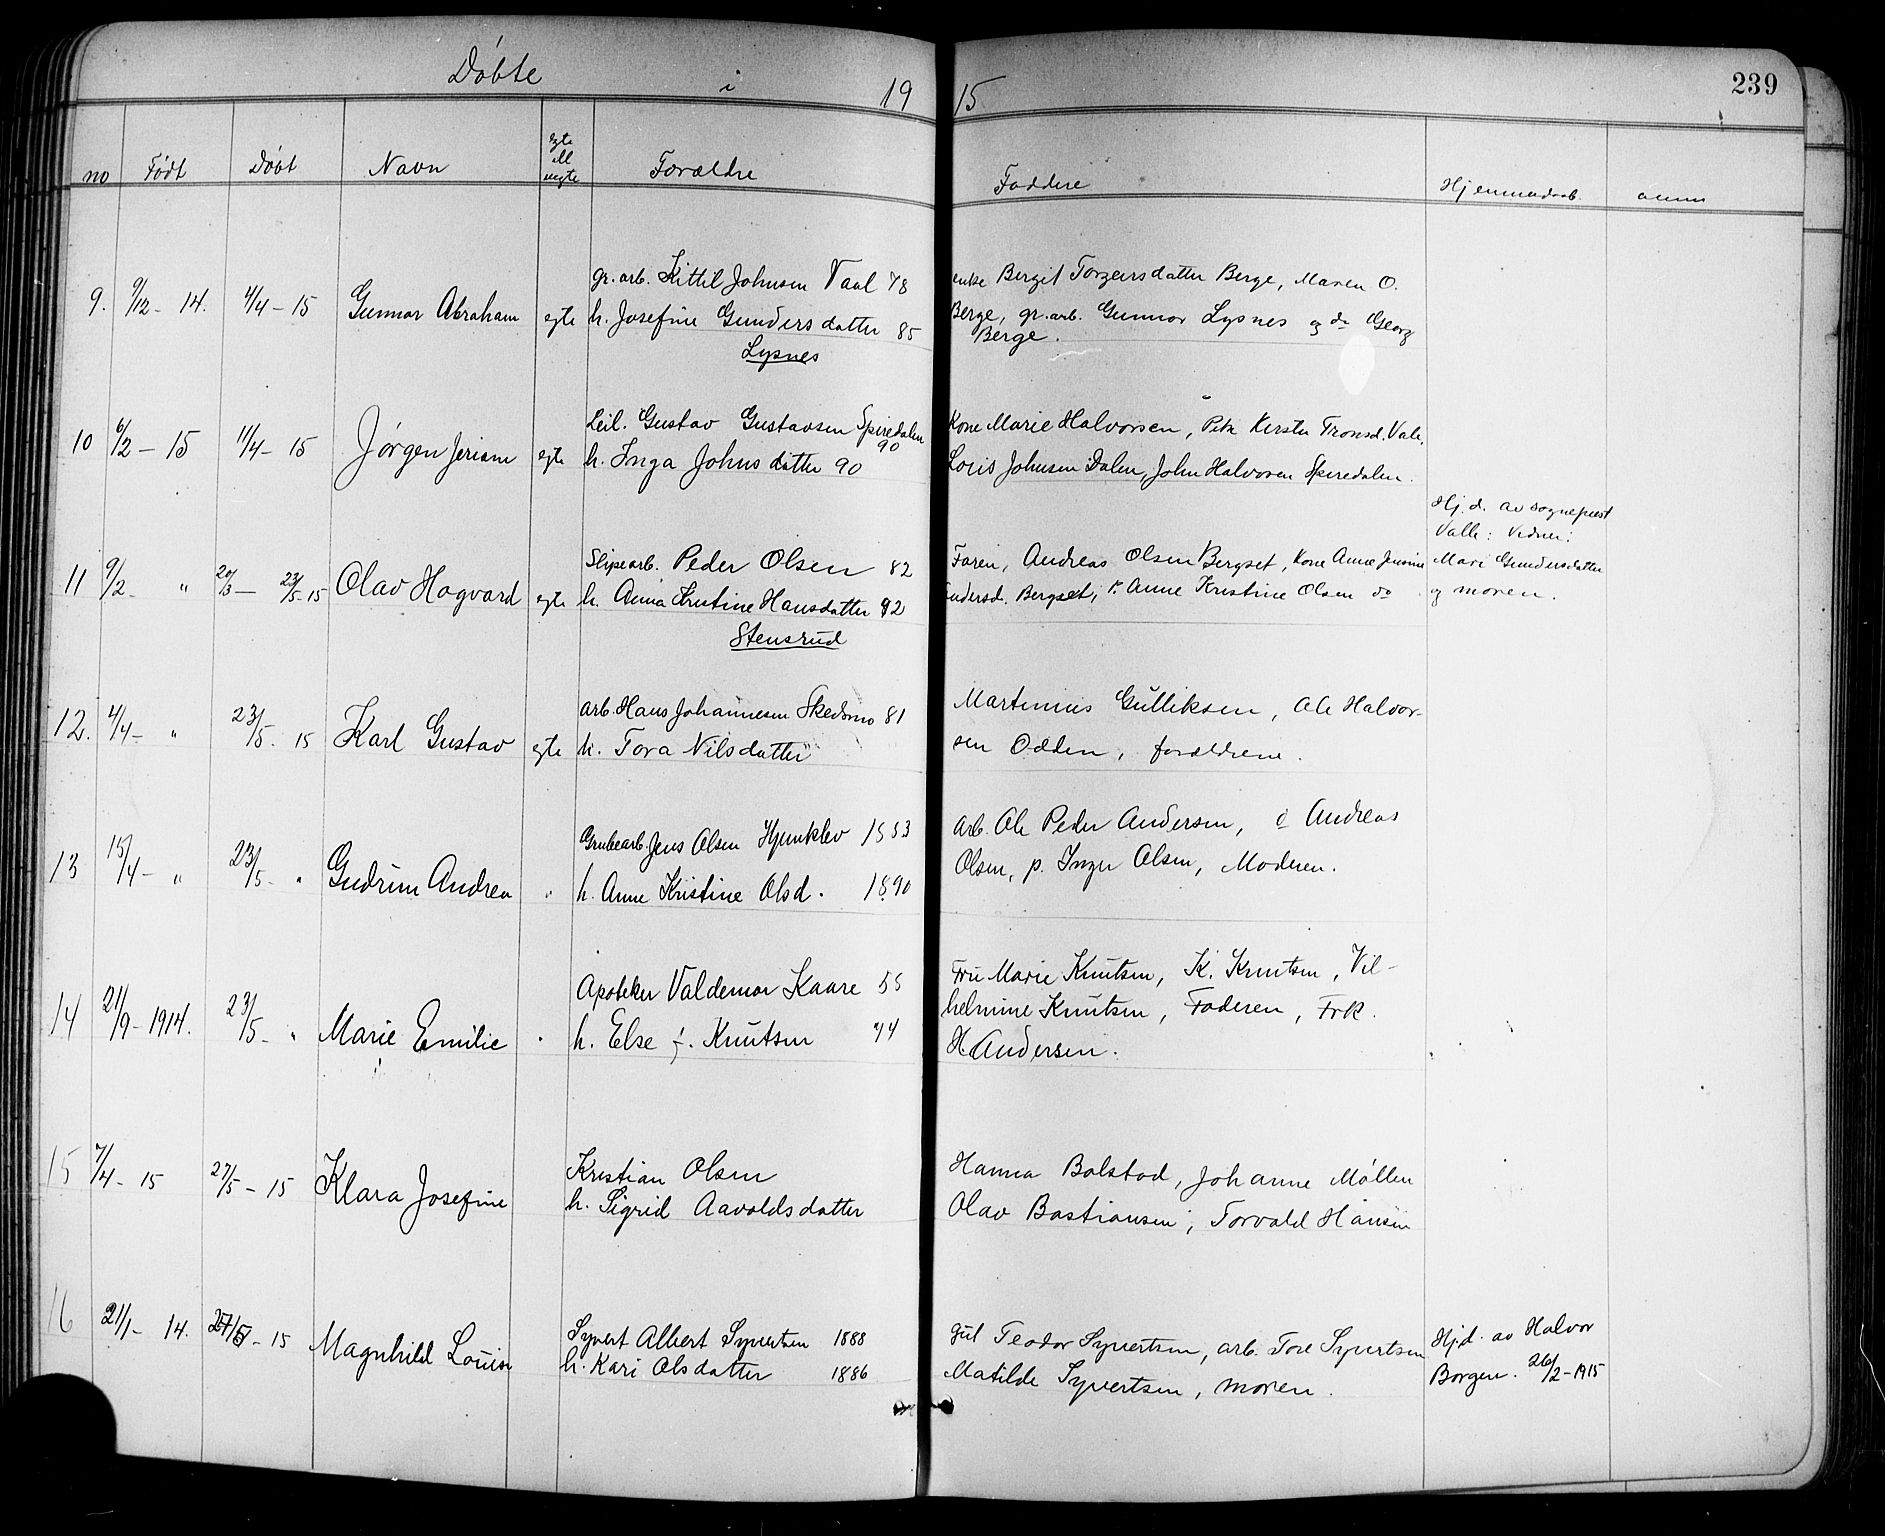 Døbte i 19 15 239
no Født Døbt Navn egte el uegte Forældre Faddere Hjemmedaab. anm
gr. arb. Kittil Johnsen Vaal 78 enke Bergit Torgeirsdatter Berge, Maren O.
9. 9/12 - 14. 4/4 - 15 Gunnar Abraham egte h. Josefine Gundersdatter 85 Berge, gr. arb. Gunnar Lysnes og do Georg
Lysnes Berge.
Leil. Gustav Gustavsen Spiredalen 90 Kone Marie Halvorsen, Kersti Tronsd. Vale,
10 6/2 - 15 11/4 - 15 Jørgen Jeriam egte h. Inga Johnsdatter 90 Loris Johnsen Dalen, John Halvorsen Spiredalen.
Hj. d. av sogneprest
Valle: Vidner:
Slipearb. Peder Olsen 82 Faren, Andreas Olsen Bergset, Kone Anne Mari Gundersdatter
11 9/2 - " 20/3 - 23/5 - 15 Olav Hagvard egte h. Anna Kristine Hansdatter 92 Bergset, p. Anne Kristine Olsen do og moren.
Stensrud
arb. Hans Johannesen Skedsmo 81 Martinius Gulliksen, Ole Halvor-
12. 4/4 - " 23/5. 15 Karl Gustav egte h. Tora Nilsdatter sen Odden, forældrene.
Grubearb. Jens Olsen 1883 arb. Ole Peder Andersen, Andreas
13 15/4 - " 23/5 - " Gudrun Andrea " h. Anne Kristine Olsd. 1890 Olsen, p. Inger Olsen, Moderen.
Apoteker Valdemar Kaare 55 Fru Marie Knutsen, K. Knutsen, Vil-
14 21/9 - 1914. 23/5 - " Marie Emilie " h. Else f. Knutsen 74 helmine Knutsen, Faderen, Frk.
H. Andersen.
Kristian Olsen Hanna Bolstad, Johanne Møllen
15 7/4 - 15 27/5 - 15 Klara Josefine h. Sigrid Aavoldsdatter Olav Bastiansen, Torvald Hansen
Syvert Albert Syvertsen 1888 gut Teodor Syvertsen, arb. Tore Syvertsen Hj.d. av Halvor
16 21/1 - 14. - 15 Magnhild Louise h. Kari Olsdatter 1886 Matilde Syvertsen, moren. Borgen. 26/2 - 1915